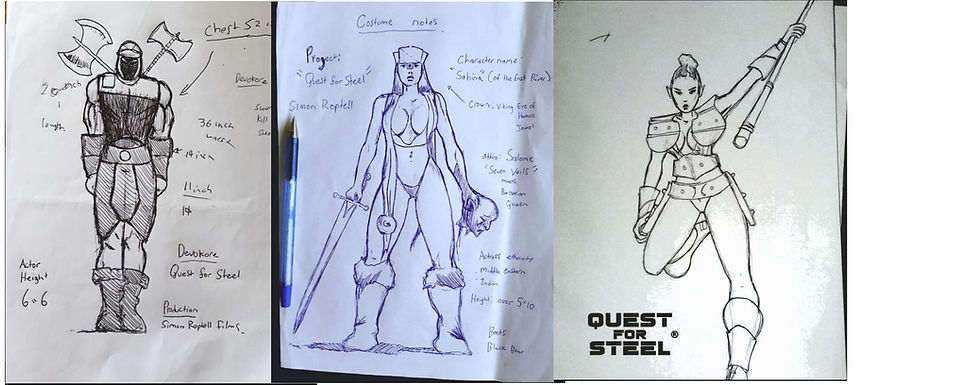 Chest 52
Devokore
2
length
36 inch
14 inch
11 inch
Devokore
Quest for Steel
Actor
Height
6"6
Production
Simon Roptell Films.
Costume notes
Project:
"Quest for Steel"
Simon Roptell
Character name:
"Sahina" (of the East River)
Crown. Viking Eye of
Jewel
attire: Salome
"Seven Veils"
meets
Barbarian
Queen
Actress ethnicity
Middle eastern
Indian
Height: over 5"10
Boots
Black
QUEST
FOR
STEEL ®